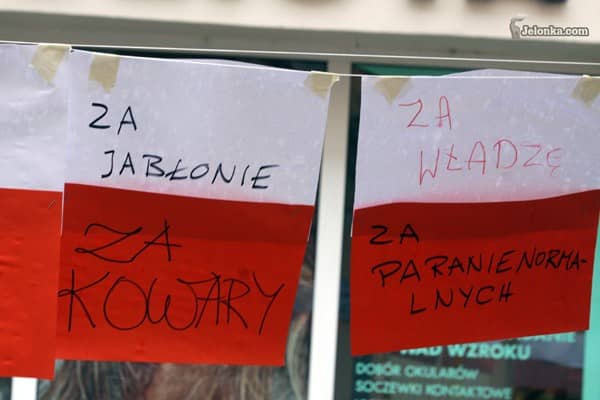 Jelonka.com
ZA
JABŁONIE
ZA
KOWARY
ZA
WŁADZĘ
ZA
PARANIENORMA-
LNYCH
WAD WZROKU
DOBÓR OKULARÓW
SOCZEWKI KONTAKTOWE